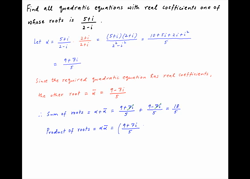 Find all quadratic equations with real coefficients one of
whose roots is (5+i)/(2-i).
Let α = (5+i)/(2-i) · (2+i)/(2+i) = (5+i)(2+i)/(2²-i²) = (10+7i+i²)/5
= (9+7i)/5
Since the required quadratic equation has real coefficients,
the other root is ᾱ = (9-7i)/5
∴ Sum of roots = α+ᾱ = (9+7i)/5 + (9-7i)/5 = 18/5
Product of roots = αᾱ = ((9+7i)/5